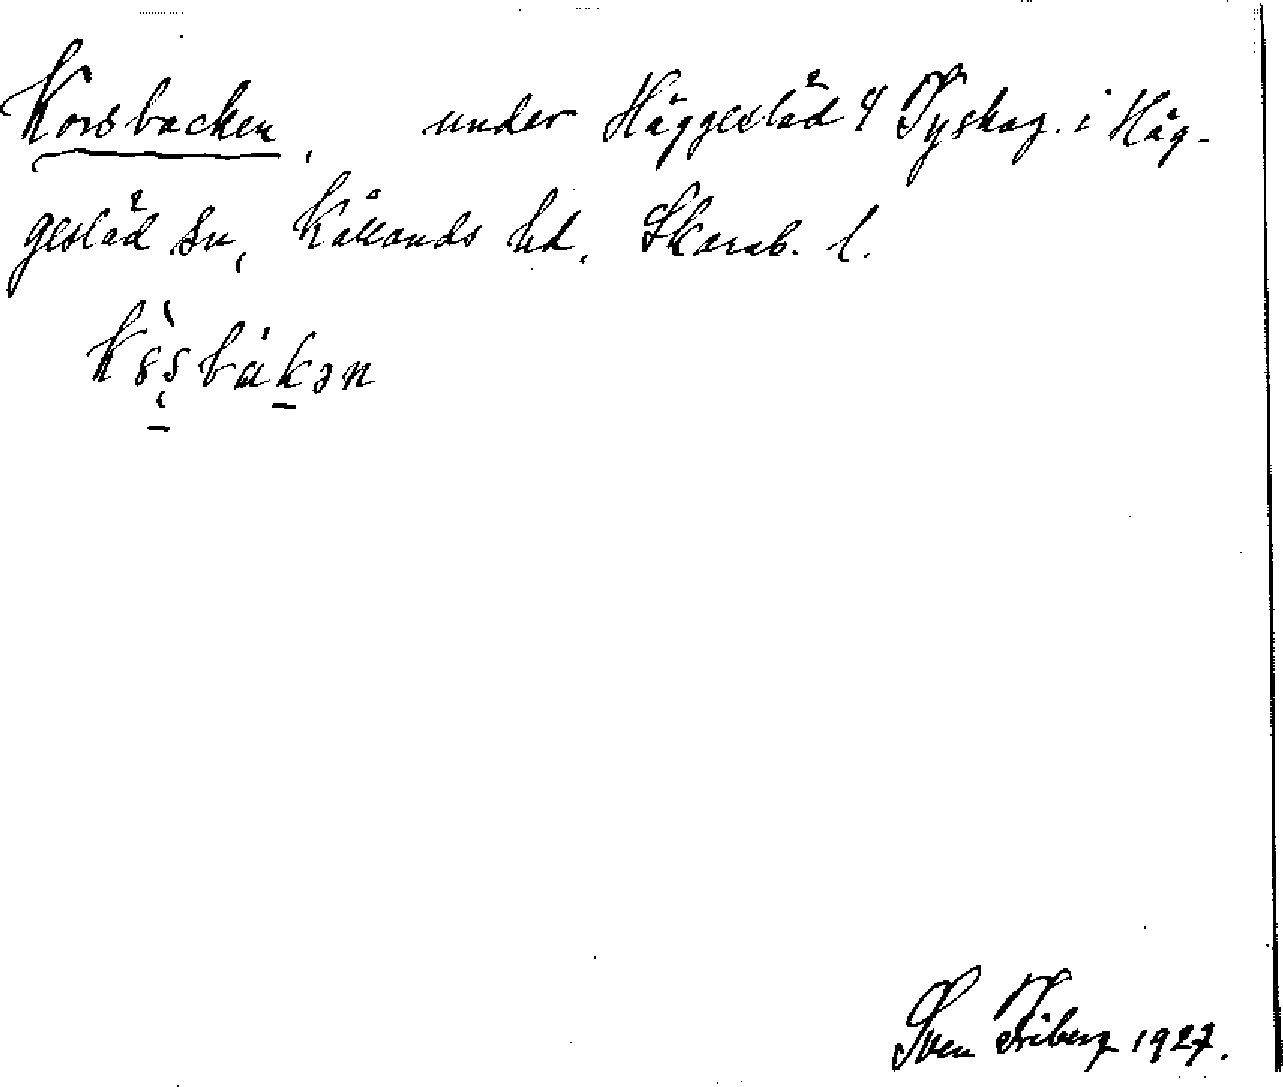 Korsbacken, under Häggesläd 4 Tyskag. i Häg-
gesläd sn, Kållands hd. Skarab. l.
Sven Friberg 1927.